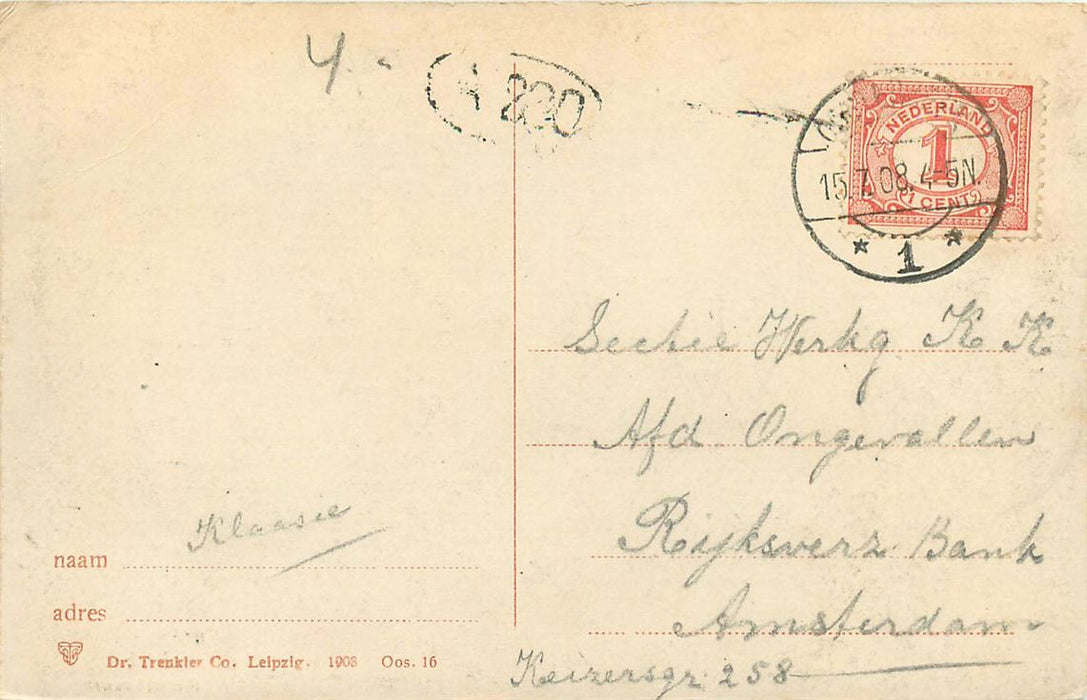 4.
A 200
NEDERLAND
1
15.7.08.4-5N.
1 CENT
1
Sectie Werkg K K
Afd. Ongevallen
Rijksverz Bank
Amsterdam
Keizersgr 258
Klaasie
naam
adres
Dr. Trenkler Co. Leipzig. 1908 Oos. 16